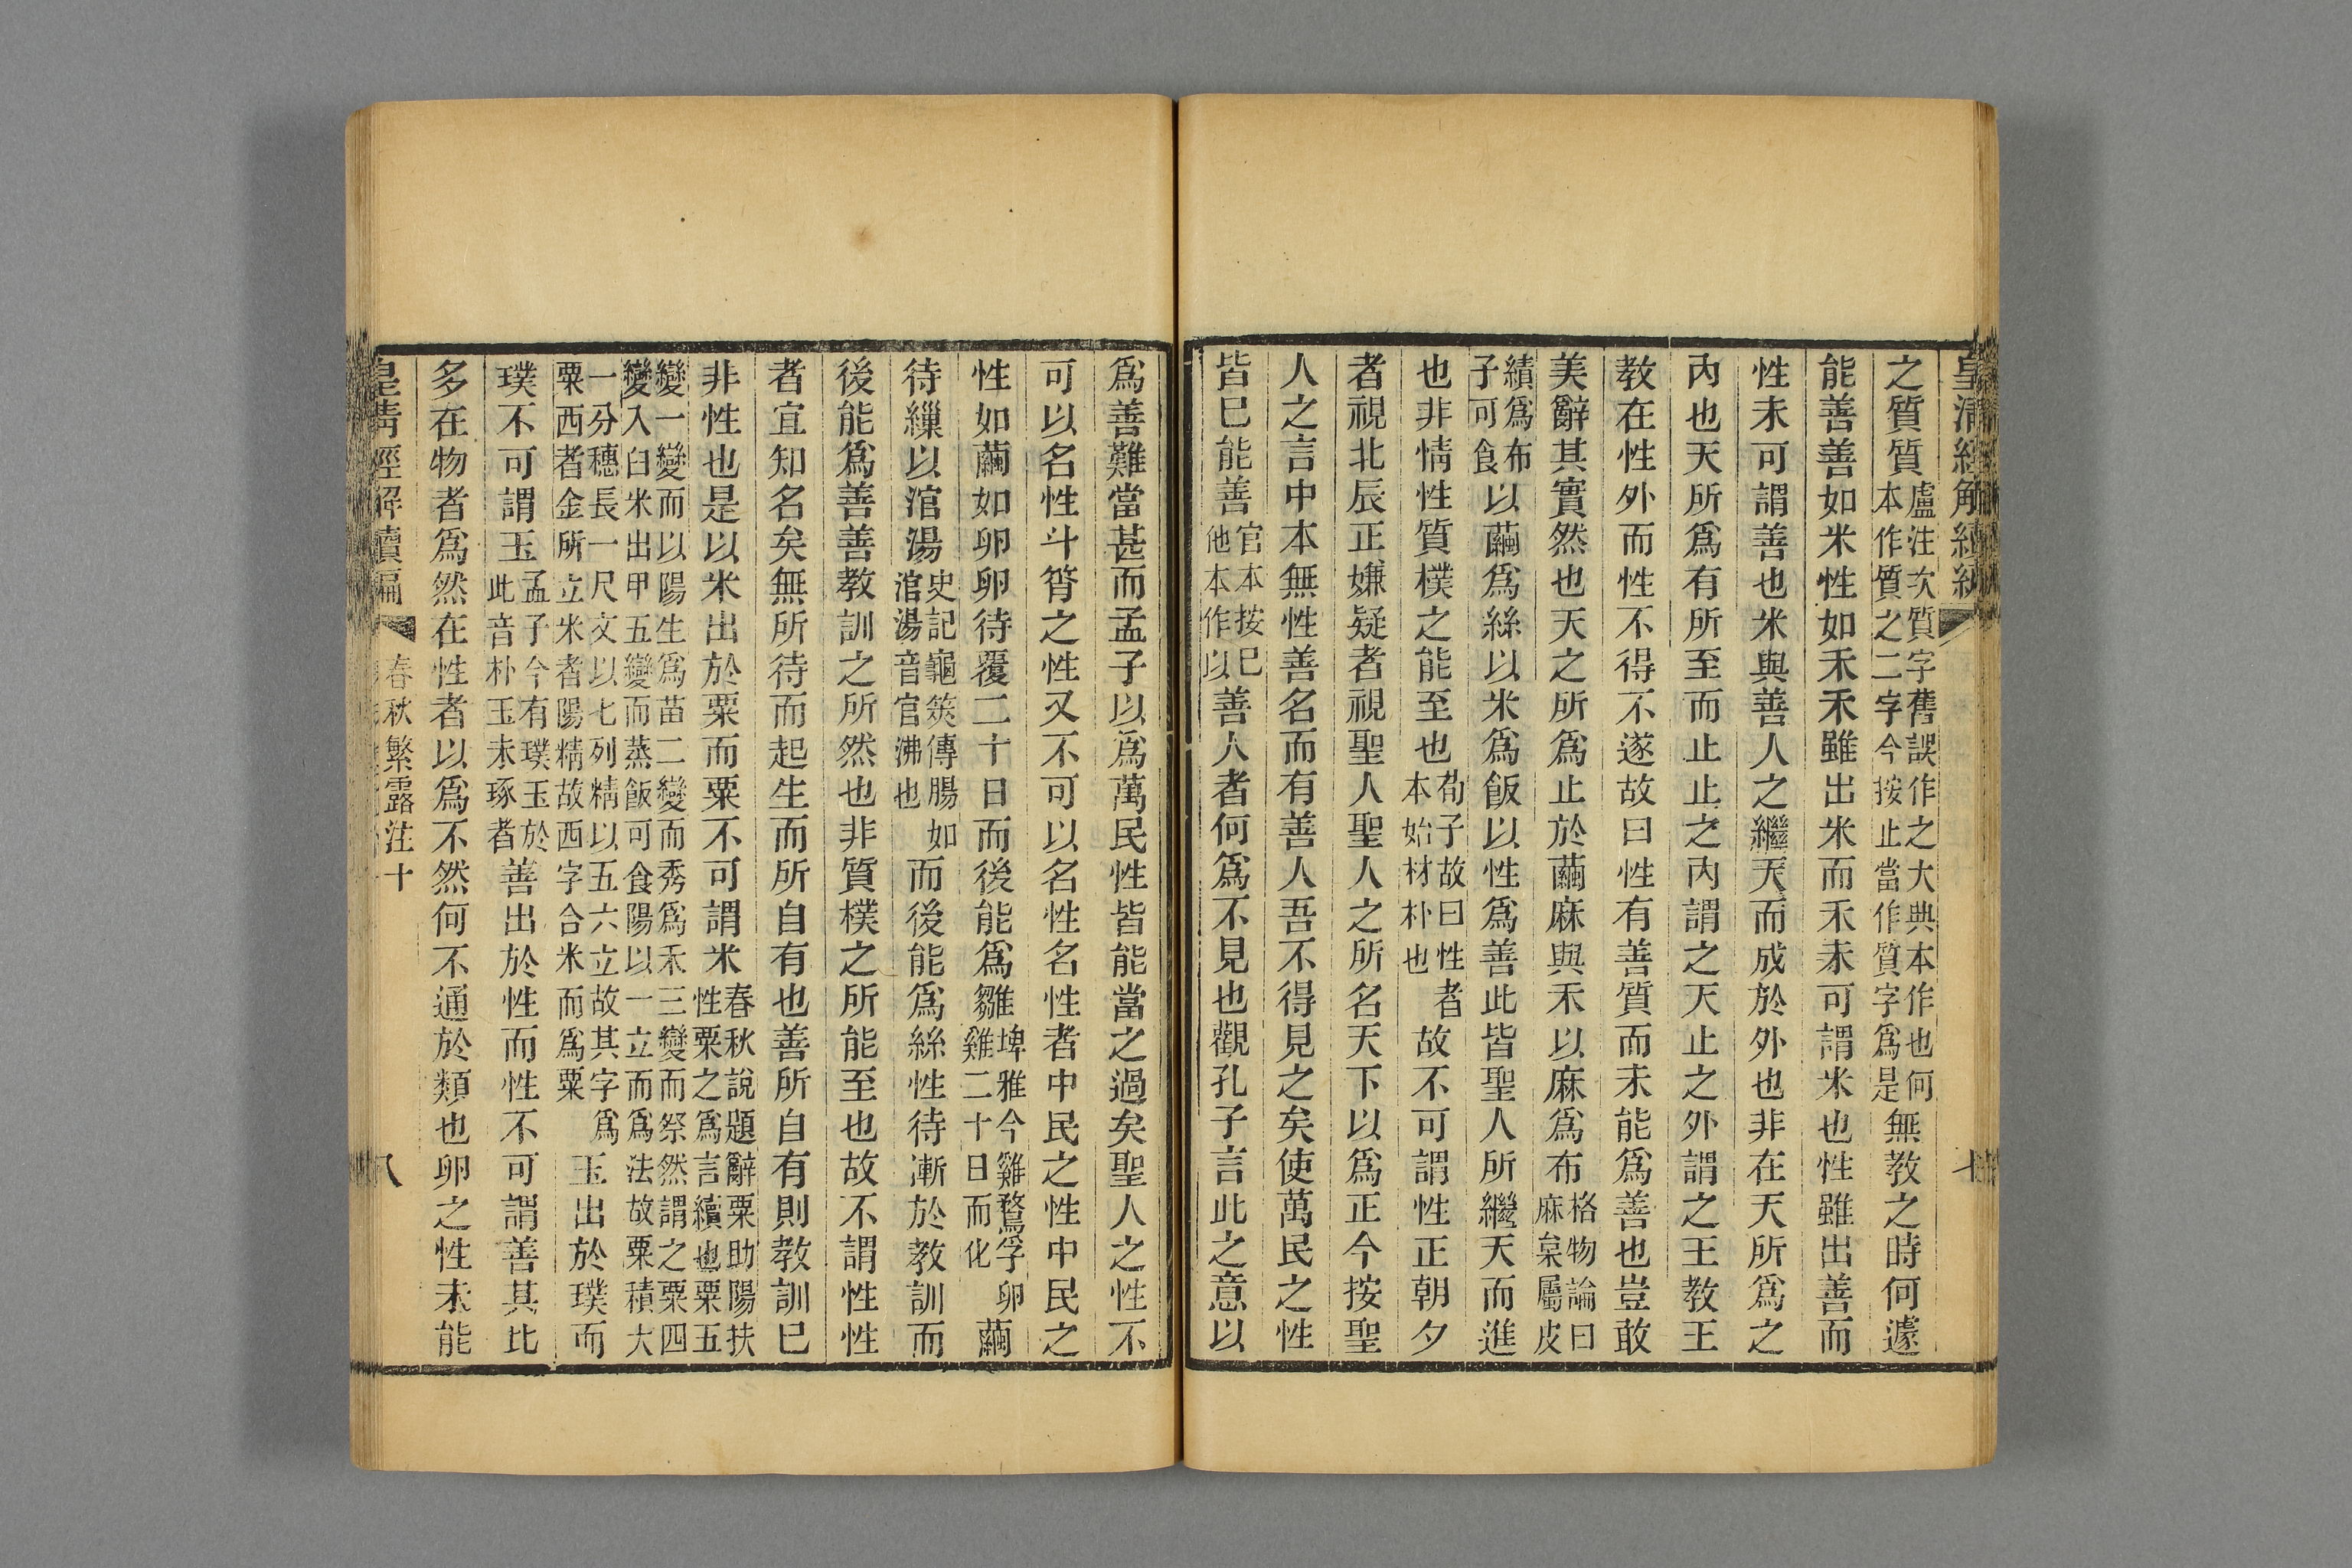 皇清經解續編
之質質盧注次質字舊誤作之大典本作也何本作質之二字今按止當作質字爲是無教之時何遽
能善善如米性如禾禾雖出米而禾未可謂米也性雖出善而
性未可謂善也米與善人之繼天而成於外也非在天所爲之
內也天所爲有所至而止止之內謂之天止之外謂之王教王
教在性外而性不得不遂故曰性有善質而未能爲善也豈敢
美辭其實然也天之所爲止於繭麻與禾以麻爲布格物論曰麻枲屬皮
績爲布子可食以繭爲絲以米爲飯以性爲善此皆聖人所繼天而進
也非情性質樸之能至也荀子故曰性者本始材朴也故不可謂性正朝夕
者視北辰正嫌疑者視聖人聖人之所名天下以爲正今按聖
人之言中本無性善名而有善人吾不得見之矣使萬民之性
皆已能善官本按已他本作以善人者何爲不見也觀孔子言此之意以
爲善難當甚而孟子以爲萬民性皆能當之過矣聖人之性不
可以名性斗筲之性又不可以名性名性者中民之性中民之
性如繭如卵卵待覆二十日而後能爲雛埤雅今雞鶩孚卵雞二十日而化繭
待繅以涫湯史記龜筴傳腸如涫湯音官沸也而後能爲絲性待漸於教訓而
後能爲善善教訓之所然也非質樸之所能至也故不謂性性
者宜知名矣無所待而起生而所自有也善所自有則教訓已
非性也是以米出於粟而粟不可謂米春秋說題辭粟助陽扶性粟之爲言續也粟五
變一變而以陽生爲苗二變而秀爲禾三變而祭然謂之粟四變入臼米出甲五變而蒸飯可食陽以一立而爲法故粟積大
一分穗長一尺文以七列精以五六立故其字爲粟西者金所立米者陽精故西字合米而爲粟玉出於璞而
璞不可謂玉孟子今有璞玉於此音朴玉未琢者善出於性而性不可謂善其比
多在物者爲然在性者以爲不然何不通於類也卵之性未能
皇清經解續編 春秋繁露注十 八